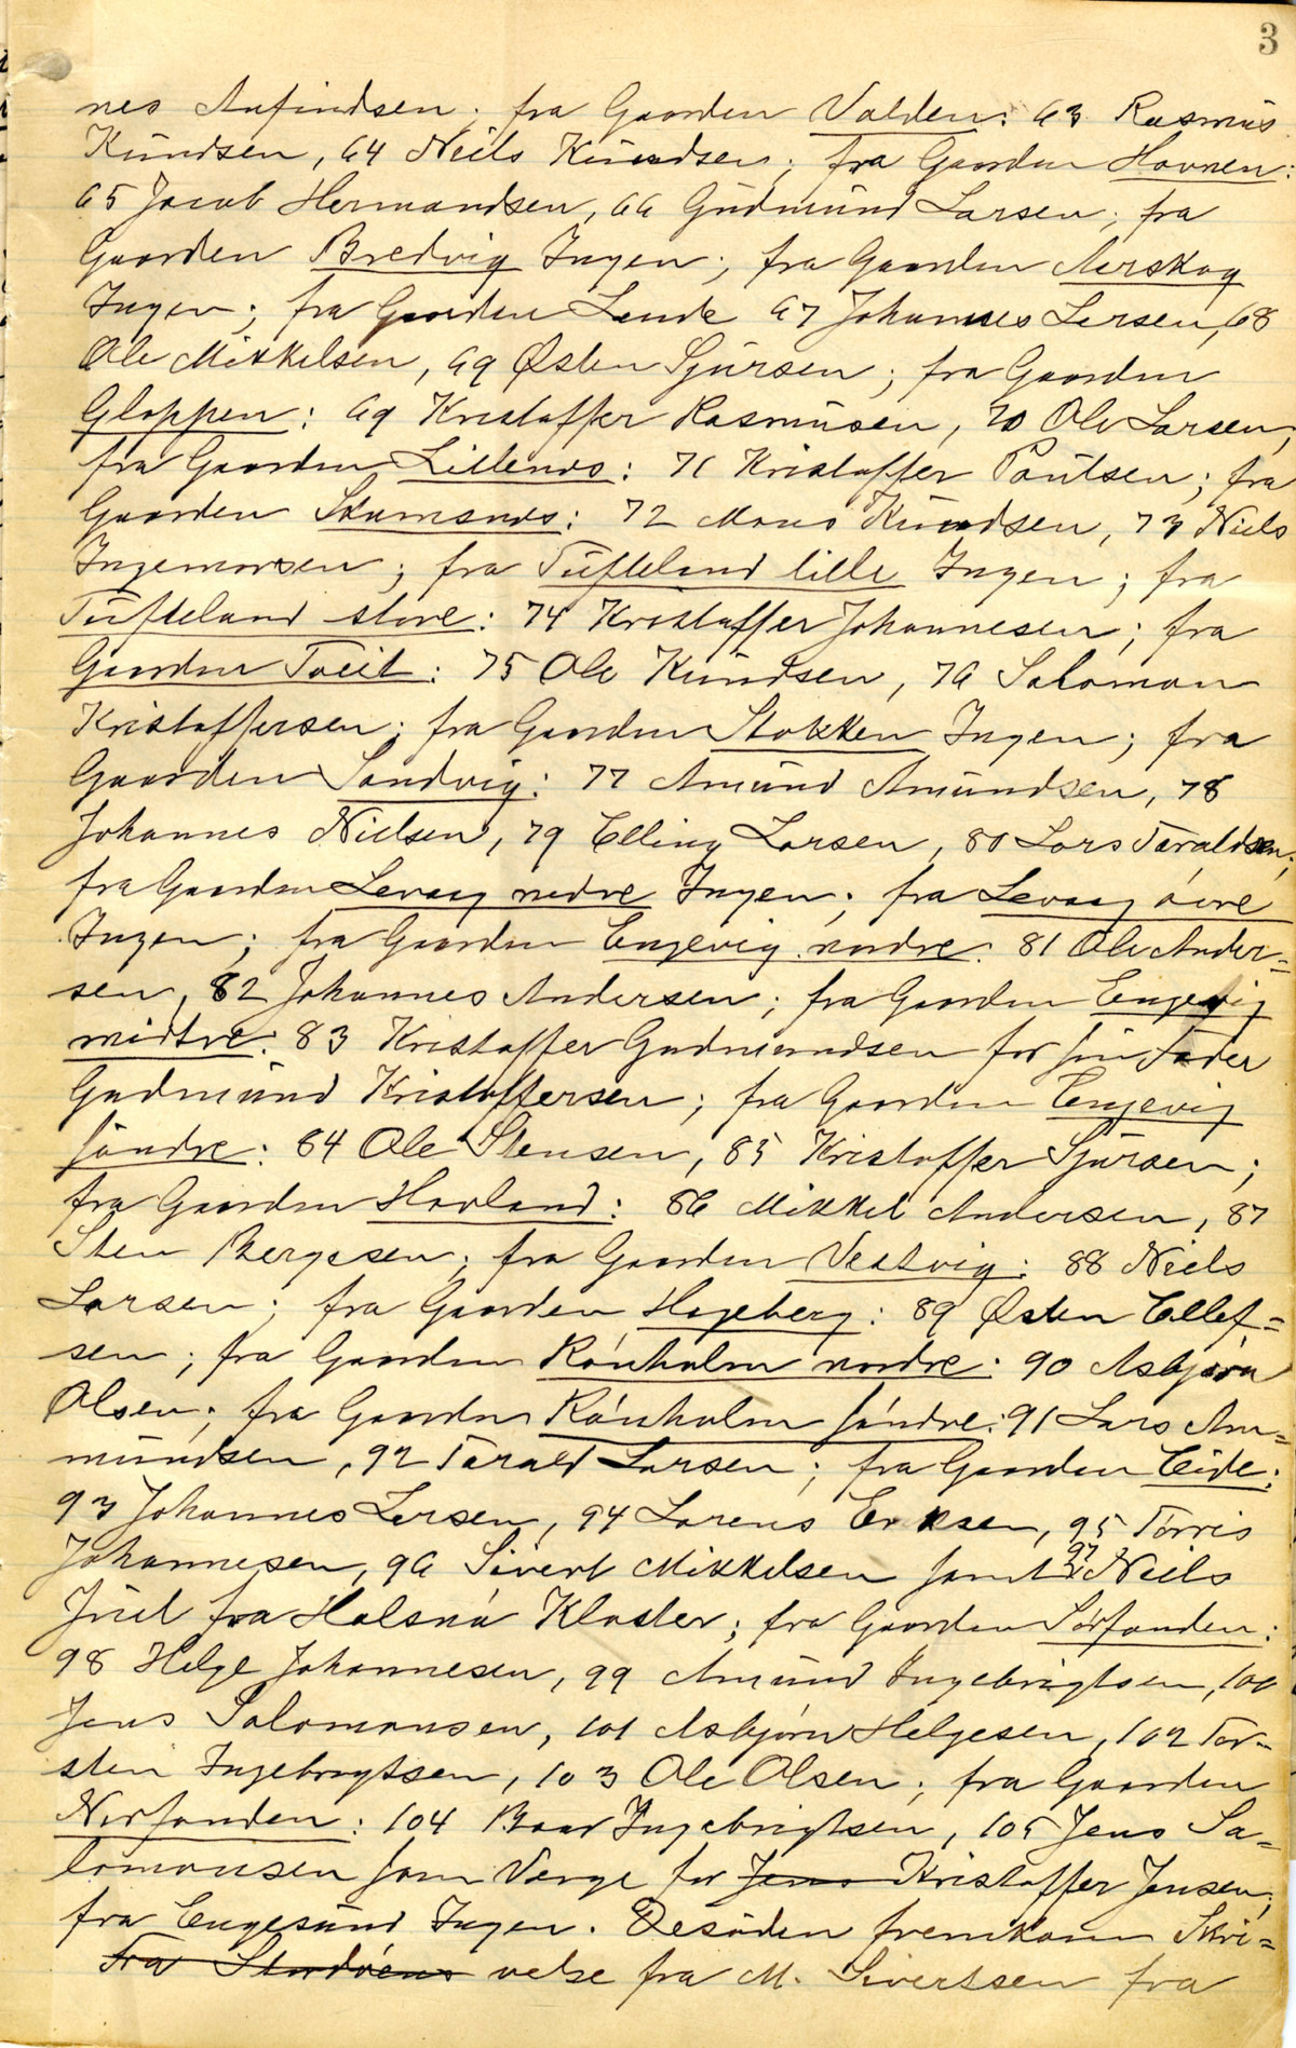 3
nes Anfindsen; fra Gaarden Valden: 63 Rasmus
Knudsen, 64 Niels Knudsen; fra Gaarden Hovnen:
65 Jacob Hermandsen, 66 Gudmund Larsen; fra
Gaarden Bredvig Ingen; fra Gaarden Aarskog
Ingen; fra Gaarden Lende 67 Johannes Larsen, 68
Ole Mikkelsen, 69 Østen Sjursen; fra Gaarden
Gloppen: 69 Kristoffer Rasmusen, 70 Ole Larsen;
fra Gaarden Lillenes: 71 Kristoffer Poulsen; fra
Gaarden Skumsnes: 72 Mons Knudsen, 73 Niels
Ingemorsen; fra Tufteland lille Ingen; fra
Tufteland store: 74 Kristoffer Johannesen; fra
Gaarden Tveit: 75 Ole Knudsen, 76 Salomon
Kristoffersen; fra Gaarden Stokken Ingen; fra
Gaarden Sandvig: 77 Amund Amundsen, 78
Johannes Nielsen, 79 Elling Larsen, 80 Lars Taraldsen;
fra Gaarden Levaag nedre Ingen; fra Levaag óvre
Ingen; fra Gaarden Engevig nordre: 81 Ole Ander=
sen, 82 Johannes Andersen; fra Gaarden Engevig
midtre: 83 Kristoffer Gudmundsen for sin Fader
Gudmund Kristoffersen; fra Gaarden Engevig
sóndre: 84 Ole Stensen, 85 Kristoffer Sjursen;
fra Gaarden Hovland: 86 Mikkel Andersen, 87
Sten Bergesen; fra Gaarden Vestvig: 88 Niels
Larsen; fra Gaarden Hageberg: 89 Østen Ellef=
sen; fra Gaarden Rónholm nordre: 90 Asbjørn
Olsen; fra Gaarden Rónholm sóndre: 91 Lars Am=
mundsen, 92 Tarald Larsen; fra Gaarden Eide:
93 Johannes Larsen, 94 Lorens Eriksen, 95 Torris
Johannesen, 96 Sivert Mikkelsen samt 97 Niels
Juel fra Halsnó Kloster; fra Gaarden Sórfonden:
98 Helge Johannesen, 99 Amund Ingebrigtsen, 100
Jens Salomonsen, 101 Asbjørn Helgesen, 102 Tor=
sten Ingebrigtsen, 103 Ole Olsen; fra Gaarden
Norfonden: 104 Baar Ingebrigtsen, 105 Jens Sa=
lomonsen som Verge for Jens Kristoffer Jensen;
fra Engesund Ingen. Desóden fremkom Skri=
Fra velse fra M. Sivertsen fra